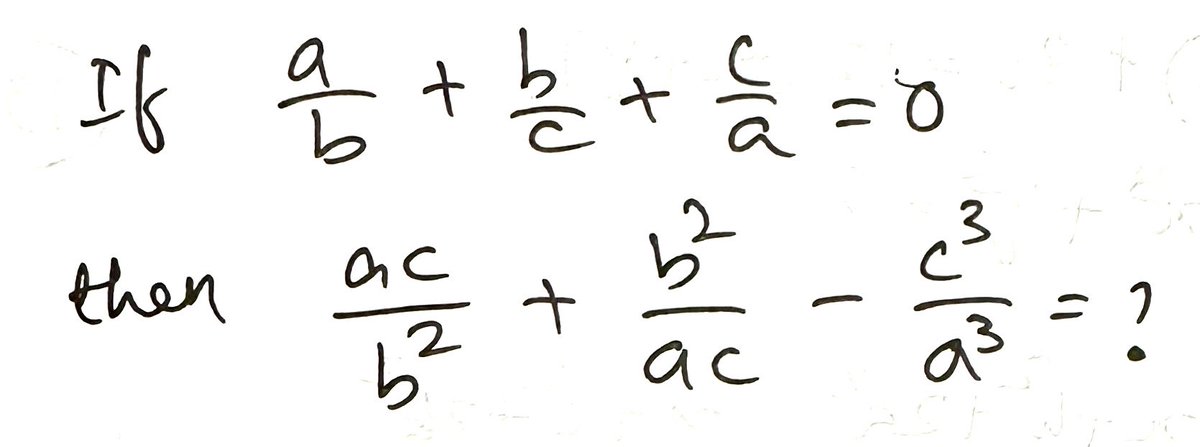 If a/b + b/c + c/a = 0
then ac/b² + b²/ac − c³/a³ = ?